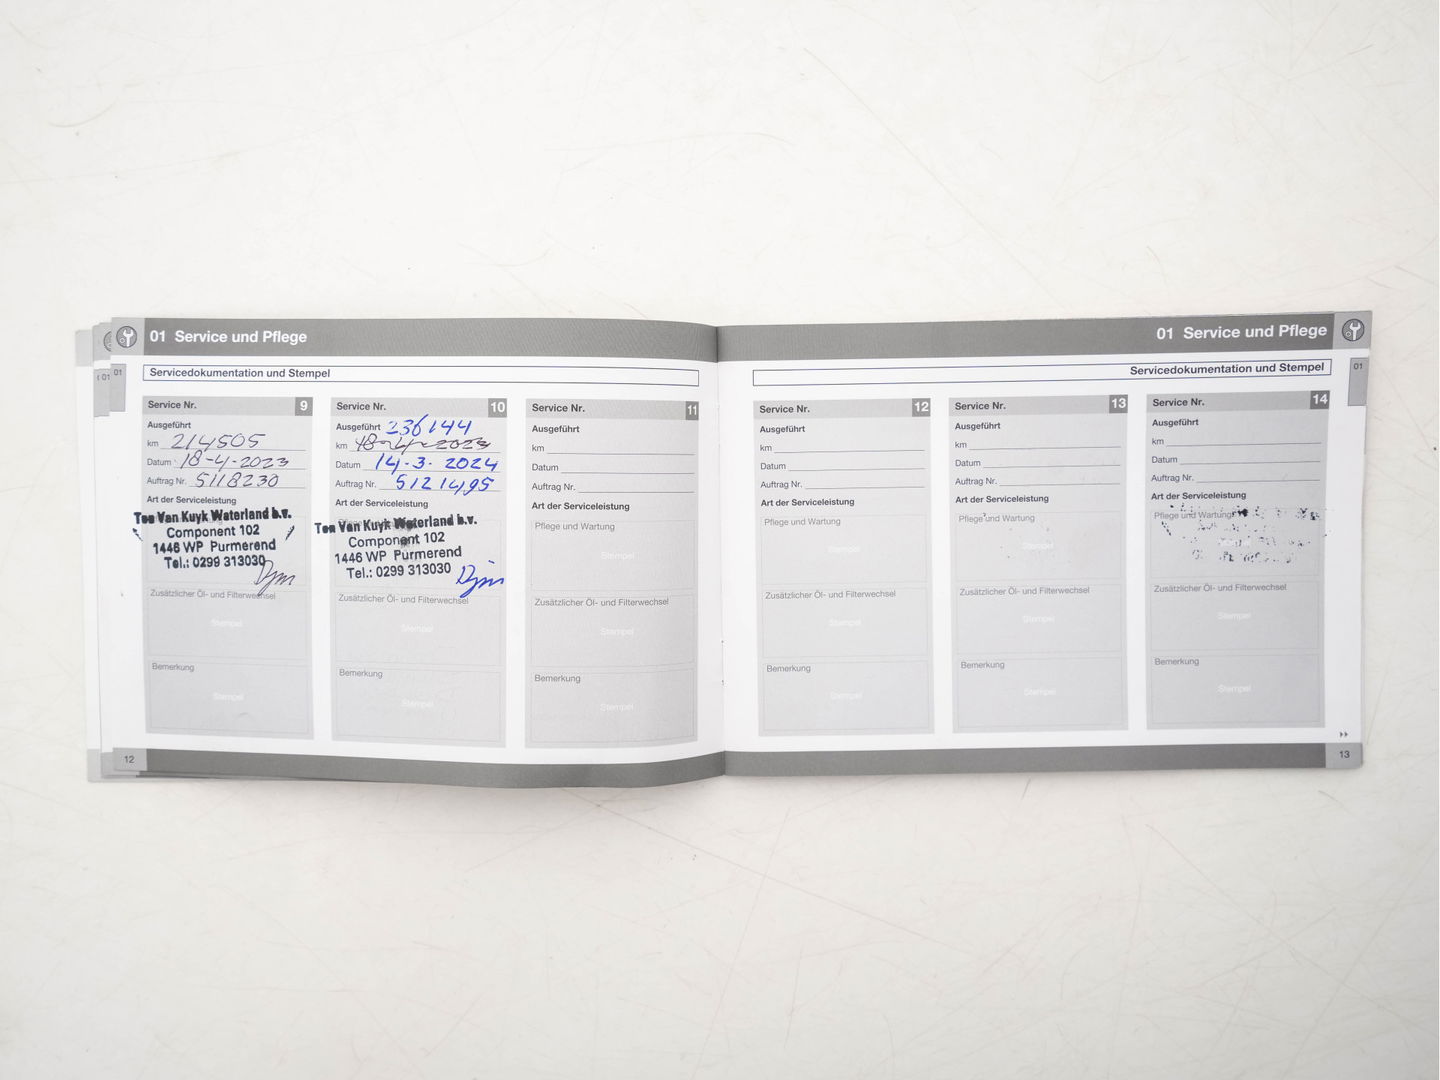 01 Service und Pflege
Servicedokumentation und Stempel
Service Nr. 9
Ausgeführt
km 214505
Datum 18-4-2023
Auftrag Nr. 5118230
Art der Serviceleistung
Ton Van Kuyk Waterland b.v.
Component 102
1446 WP Purmerend
Tel.: 0299 313030
Zusätzlicher Öl- und Filterwechsel
Stempel
Bemerkung
Stempel
Service Nr. 10
Ausgeführt 236144
km 18-4-2023
Datum 14-3-2024
Auftrag Nr. 5121495
Art der Serviceleistung
Ton Van Kuyk Waterland b.v.
Component 102
1446 WP Purmerend
Tel.: 0299 313030
Zusätzlicher Öl- und Filterwechsel
Stempel
Bemerkung
Stempel
Service Nr. 11
Ausgeführt
km
Datum
Auftrag Nr.
Art der Serviceleistung
Pflege und Wartung
Stempel
Zusätzlicher Öl- und Filterwechsel
Stempel
Bemerkung
Stempel
12
01
01
01 Service und Pflege
Servicedokumentation und Stempel
Service Nr. 12
Ausgeführt
km
Datum
Auftrag Nr.
Art der Serviceleistung
Pflege und Wartung
Stempel
Zusätzlicher Öl- und Filterwechsel
Stempel
Bemerkung
Stempel
Service Nr. 13
Ausgeführt
km
Datum
Auftrag Nr.
Art der Serviceleistung
Pflege und Wartung
Stempel
Zusätzlicher Öl- und Filterwechsel
Stempel
Bemerkung
Stempel
Service Nr. 14
Ausgeführt
km
Datum
Auftrag Nr.
Art der Serviceleistung
Pflege und Wartung
Zusätzlicher Öl- und Filterwechsel
Stempel
Bemerkung
Stempel
01
13